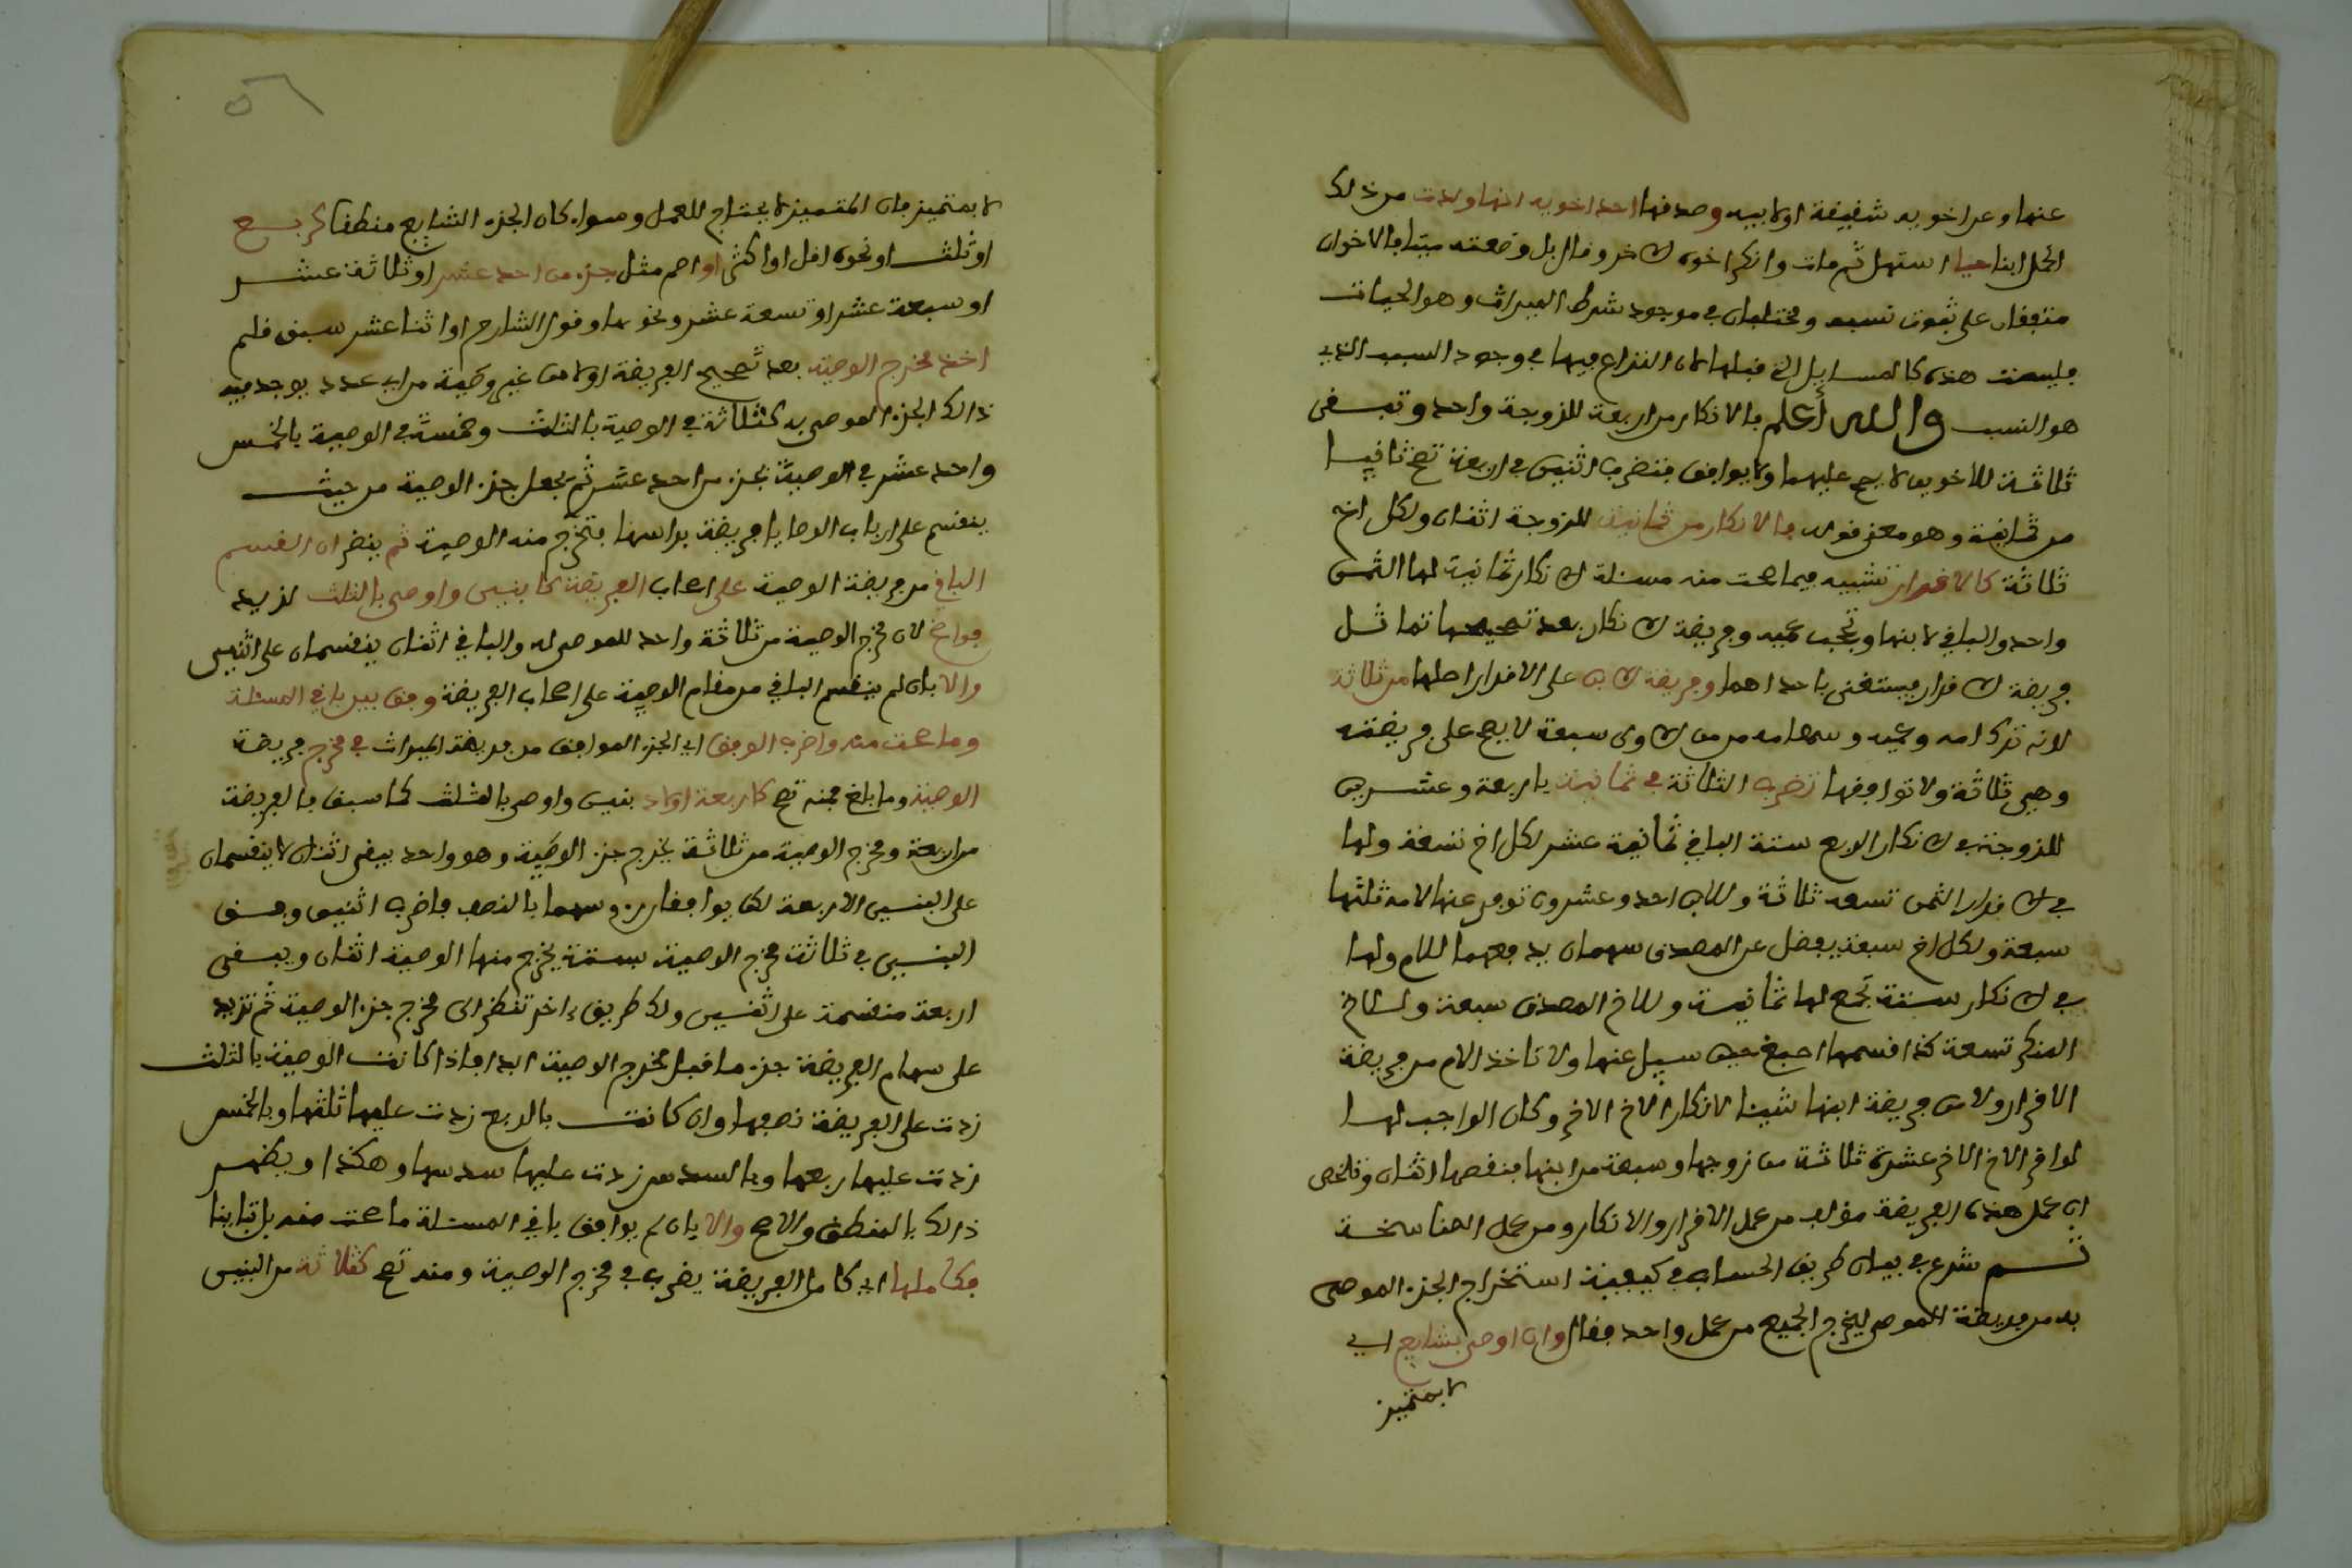 عنها وعن اخويه شقيقة او لابيه وصدقها احد اخويه انها ولدت من ذلك
الحمل ابنا حيا استهل ثم مات وانكر اخوه الاخر وقال بل وضعته ميتا فالاخوان
متفقان على ثبوت نسبه ومختلفان في موجود شرط الميراث وهو الحيات
فليست هذه كالمسايل التي قبلها لان النزاع فيها في وجود السبب الذي
هو النسب والله أعلم فالانكار من اربعة للزوجة واحد وتبقى
ثلاثة للاخوين لا يصح عليهما ولا يوافق فتضرب اثنين في اربعة تصح ثمانية
من ثمانية وهو معنى قوله فالانكار من ثمانية للزوجة اثنان ولكل اخ
ثلاثة كالاقرار تشبيه فيما صحت منه مسئلة الانكار ثمانية لها الثمن
واحد والباقي لابنها ويحجب عميه وفريضة الانكار بعد تصحيحها تماثل
فريضة الاقرار فيستغنى باحداهما وفريضة الابن على الاقرار اصلها من ثلاثة
لانه ترك امه وعميه وسهامه من الاولى سبعة لا يصح على فريضته
وهي ثلاثة ولا توافقها تضرب الثلاثة في ثمانية باربعة وعشرين
للزوجة في الانكار الربع ستة الباقي ثمانية عشر لكل اخ تسعة ولها
في الاقرار الثمن تسعه ثلاثة وللابن احد وعشرون توفي عنها لامه ثلثها
سبعة ولكل اخ سبعة يفضل عن المصدق سهمان يدفعهما للام ولها
في الانكار ستة تجمع لها ثمانية وللاخ المصدق سبعة وللاخ
المنكر تسعة كذا قسمها اصبغ حين سيل عنها ولا تاخذ الام من فريضة
الاقرار ولا من فريضة ابنها شيئا لانكار الاخ الاخر وكان الواجب لها
لو اقر الاخ الاخر عشرة ثلاثة من زوجها وسبعة من ابنها فنقصها اثنان وتلخص
ان عمل هذه الفريضة مؤلف من عمل الاقرار والانكار ومن عمل المناسخة
ثم شرع في بيان طريق الحساب في كيفية استخراج الجزء الموصى
به من فريضة الموصي ليخرج الجميع من عمل واحد فقال وان اوصى بشايع اي
لا بمتميز
لا بمتميز فان المتميز لا يحتاج للعمل وسواء كان الجزء الشايع منطقا كربع
او ثلث او نحوه اقل او اكثر او اصم مثل جزء من احد عشر او ثلاثة عشر
او سبعة عشر او تسعة عشر ونحوها وقول الشارح او اثنا عشر سبق قلم
اخذ مخرج الوصية بعد تصحيح الفريضة اولا من غير وصية من اي عدد يوجد فيه
ذالك الجزء الموصى به كثلاثة في الوصية بالثلث وخمسة في الوصية بالخمس
واحد عشر في الوصية بجزء من احد عشر ثم يجعل جزء الوصية من حيث
ينقسم على ارباب الوصايا فريضة براسها فتخرج منه الوصية ثم ينظر ان انقسم
الباقي من فريضة الوصية على اصحاب الفريضة كابنين واوصى بالثلث لزيد
فواضح لان مخرج الوصية من ثلاثة واحد للموصى له والباقي اثنان ينقسمان على اثنين
والا بان لم ينقسم الباقي من مقام الوصية على اصحاب الفريضة وفق بين باقي المسئلة
وما صحت منه واضرب الوفق اي الجزء الموافق من فريضة الميراث في مخرج فريضة
الوصية وما بلغ فمنه تصح كاربعة اولاد بنين واوصى بالثلث كما سبق فالفريضة
من اربعة ومخرج الوصية من ثلاثة يخرج جزء الوصية وهو واحد يبقى اثنان لا ينقسمان
على البنين الاربعة لكن يوافقان سهما بالنصف فاضرب اثنين وفق
البنين في ثلاثة مخرج الوصية بستة يخرج منها الوصية اثنان ويبقى
اربعة منقسمة على البنين ولك طريق اخر تنظر الى مخرج جزء الوصية ثم تزيد
على سهام الفريضة جزء ما قبل مخرج الوصية ابدا فاذا كانت الوصية بالثلث
زدت على الفريضة نصفها وان كانت بالربع زدت عليها ثلثها وبالخمس
زدت عليها ربعها وبالسدس زدت عليها سدسها وهكذا ويظهر
ذالك بالمنطق والاصم والا بان لم يوافق باقي المسئلة ما صحت منه بل تباينا
فكاملها اي كامل الفريضة يضرب في مخرج الوصية ومنه تصح كثلاثة من البنين